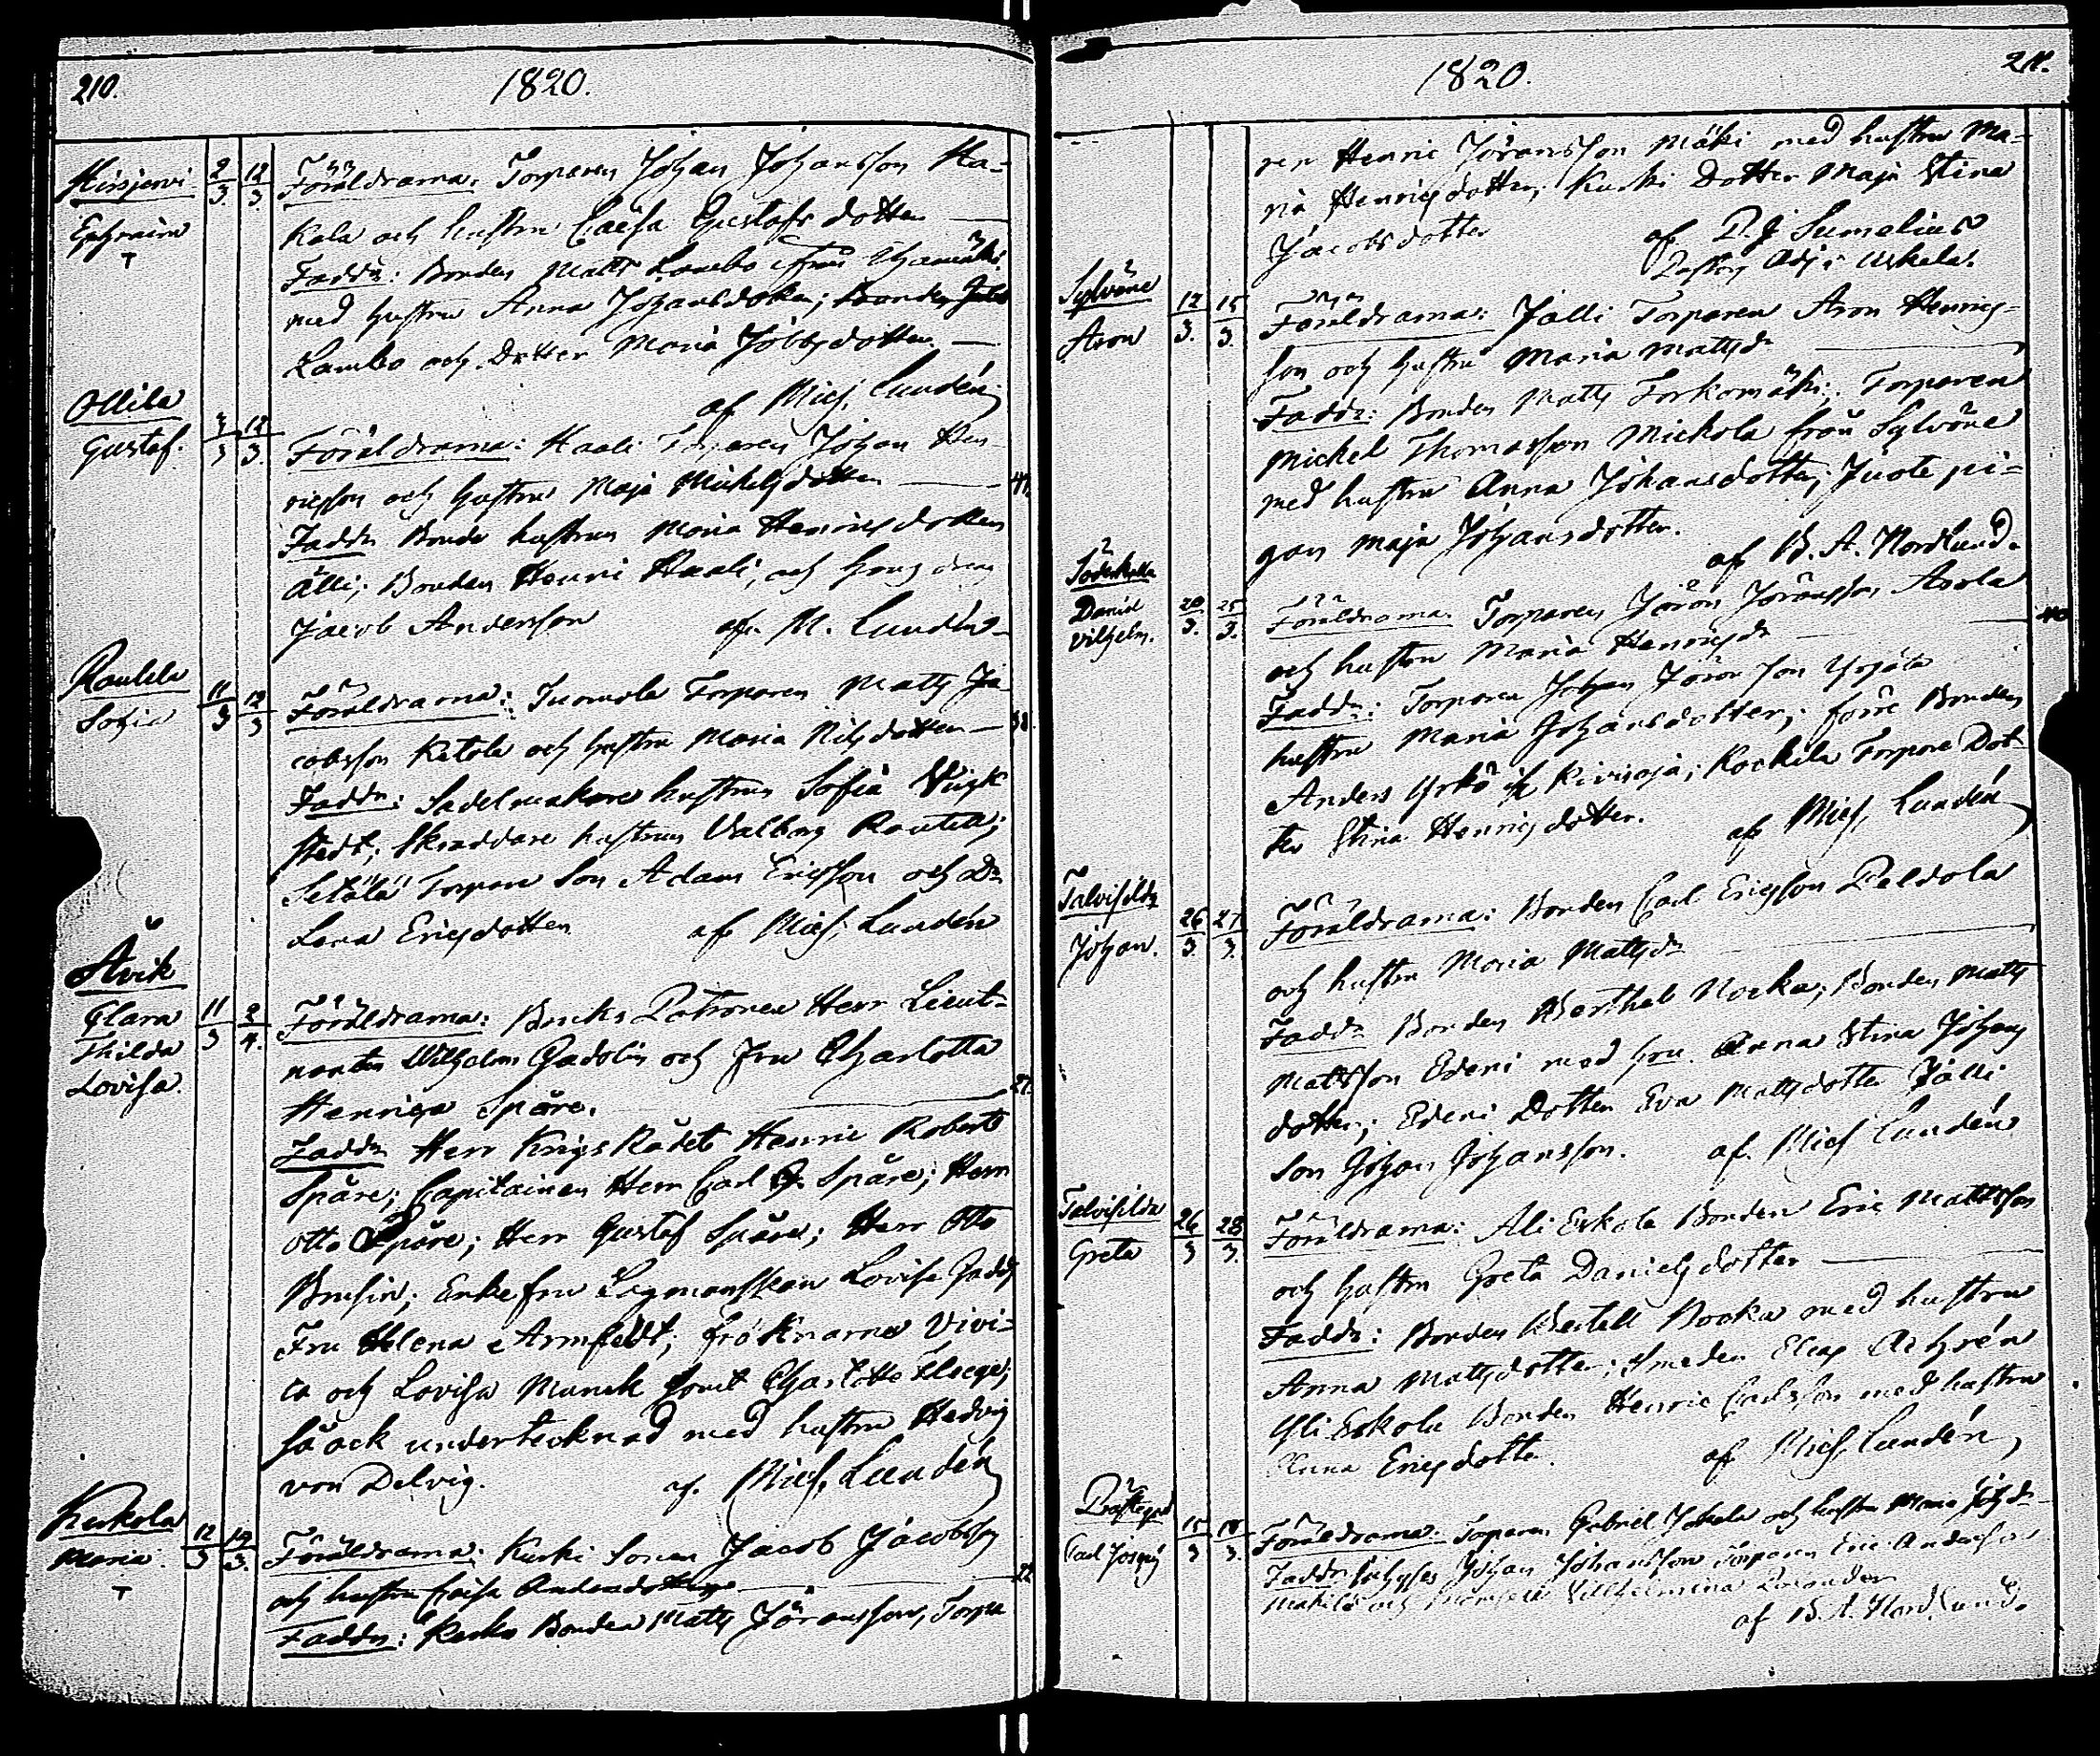 210.
1820.
Hirsjervi
Ephraim
2/3 12/3
Föräldrarna: Torparen Johan Johansson Ha-
kala och hustru Caisa Gustafsdotter
Faddr: Bonden Matts Lambo ifrån
med hustru Anna Johansdotter; Bonden
Lambo och Dotter Maria Jöbbsdotter.
af Mich. Lundén
Ollila
Gustaf.
12/3
Föräldrarna: Haali Torparen Johan Hen-
ricsson och hustru Maja Michelsdotter
Faddr Bonde hustrun Maria Henricsdotter
Älli; Bonden Henric Haali, och
Jacob Andersson af M. Lundén
Rautela
Sofia
11/3 12/3
Föräldrarna: Tuomola Torparen Matts Ja-
cobsson Ketola och hustru Maria Nilsdotter
Faddr: Sadelmakare hustrun Sofia
stedt; Skräddare hustrun Valborg Rautell;
Setälä Torpare Son Adam Ericsson och Dr
Lena Ericsdotter af Mich. Lundén
Åvik
Clara
Thilda
Lovisa.
11/3 2/4.
Föräldrarna: Bruks Patronen Herr Lieut-
nanten Wilhelm Gadolin och Fru Charlotta
Henrica Spåre.
27.
Faddr Herr Krigs Rådet Henric Robert
Spåre; Capitainen Herr Carl G. Spåre; Herr
Otto Spåre; Herr Gustaf Spåre; Herr Otto
Brusin; Enkefru Lagmanskan Lovisa Gadd;
Fru Helena Armfeldt; Fröknarna Vivi-
ca och Lovisa Munck samt Charlotta
så ock undertecknad med hustru Hedvig
von Delvig. af. Mich. Lundén
Kurkela
Maria.
12/3 19/3.
Föräldrarna: Kurki Sonen Jacob Jacobsson
och hustru Caisa Andersdotter
22
Faddr: Kurki Bonden Matts Jöransson, Torpa
1820.
211.
ren Henric Jöransson Mäki med hustru Ma-
ria Henricsdotter; Kurki Dotter Maja Stina
Jacobsdotter af P. J. Sumelius
Pastors Adj. i Uskela.
Sylvöne
Aron
12/3. 15/3.
Föräldrarna: Jalli Torparen Aron Henrics-
son och hustru Maria Mattsdr
Faddr: Bonden Matts Torkomäki; Torparen
Michel Thomasson Mickola från Sylvöne
med hustru Anna Johansdotter; Juote pi-
gan Maja Johansdotter.
af B. A. Nordlund.
Daniel
Vilhelm.
20/3. 25/3.
Föräldrarna: Torparen Jöran Jöransson Asola
och hustru Maria Henricsdr
40
Faddr: Torparen Johan Jöransson
hustru Maria Johansdotter; förre Bonden
Anders Yrkö i Kivioja; Kockila Torpare Dot-
ter Stina Henricsdotter. af Mich. Lundén
Talvisilda
Johan.
26/3. 27/3.
Föräldrarna: Bonden Carl Ericsson Peldola
och hustru Maria Mattsdr
Faddr Bonden Berthel Nocka; Bonden Matts
Mattsson Ederi med hru. Anna Stina Johans
dotter; Ederi Dotter Eva Mattsdotter Jälli
Son Johan Johansson. af. Mich Lundén
Talvisilda
Greta
26/3 28/3.
Föräldrarna: Ali Eskola Bonden Eric Mattsson
och hustru Greta Danielsdotter
Faddr: Bonden Bertell Nocka med hustru
Anna Mattsdotter; Smeden Elias Achrén
Yli Eskola Bonden Henric Carlsson med hustru
Anna Ericsdotter. af Mich. Lundén
Prästgård
Carl
15/3 18/3.
Föräldrarna: Torparen Gabriel Jokela och hustru Maria Johdr
Faddr Johan Johansson Torparen Eric Andersson
Mäkilä och Mamsell Vilhelmina
af B. A. Nordlund.